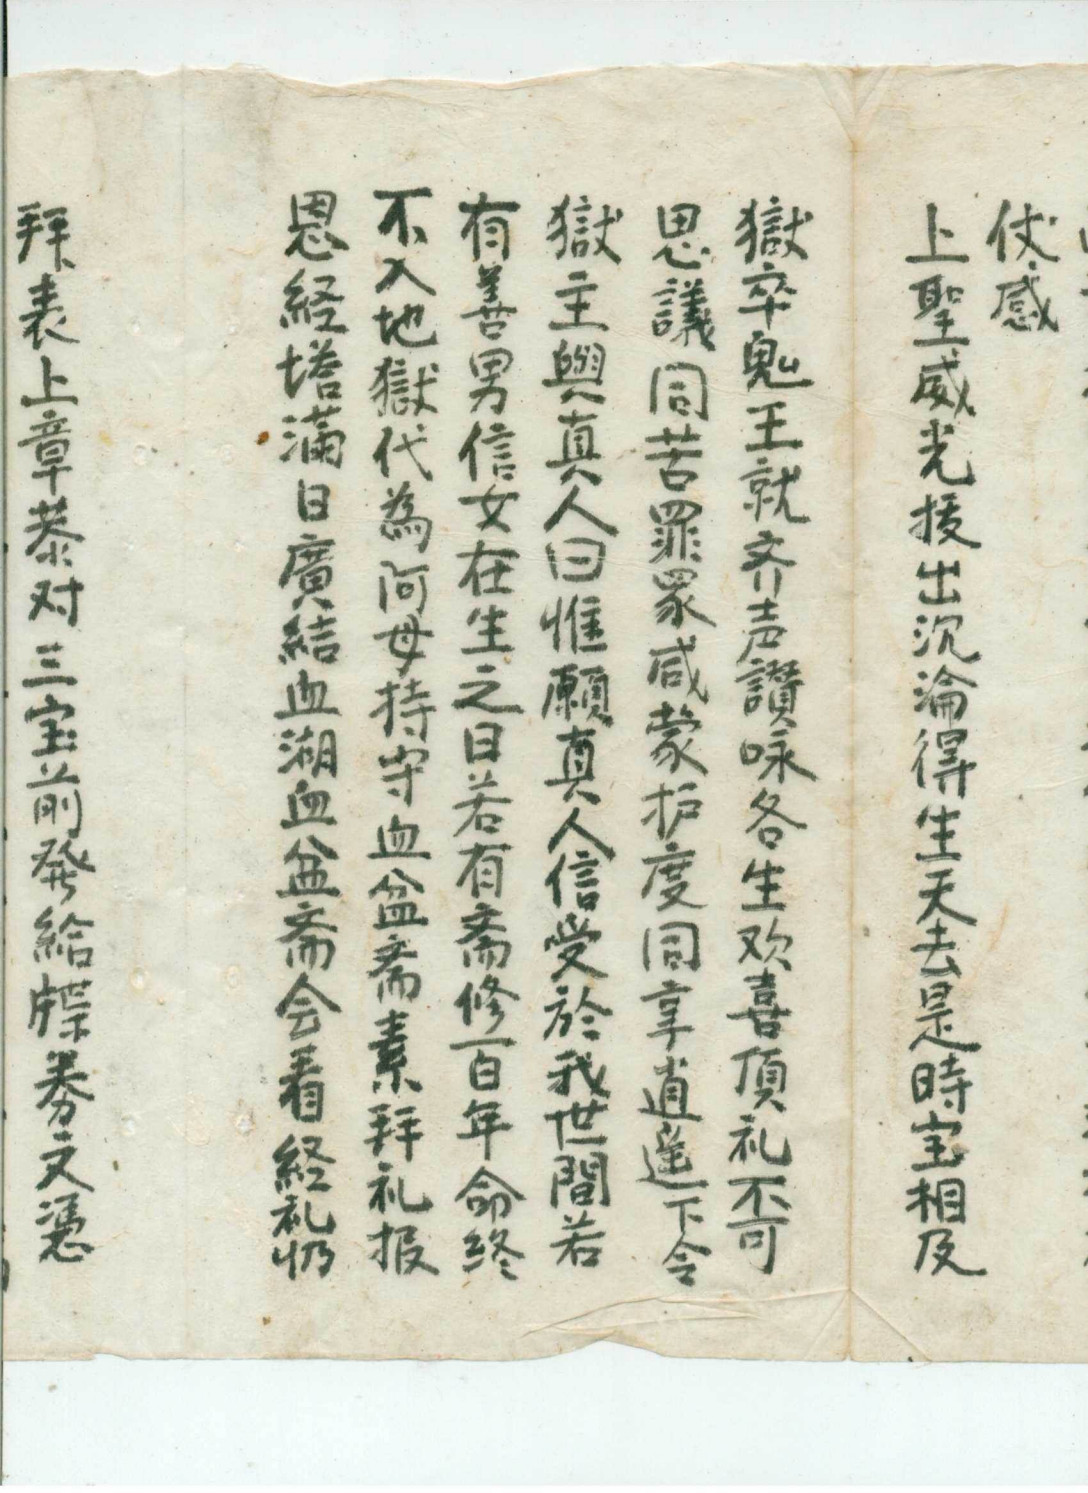 仗感
上聖威光援出沉淪得生天去是時宝相及
獄卒鬼王就齐声讚咏各生欢喜頂礼不可
思議同苦罪眾咸蒙护度同享逍遥下令
獄主與真人曰惟願真人信受於我世間若
有善男信女在生之日若有斋修百年命終
不入地獄代為阿母持守血盆斋素拜礼报
恩経塔滿日廣結血湖血盆斋会看経礼忏
拜表上章恭对三宝前発給牒券文憑